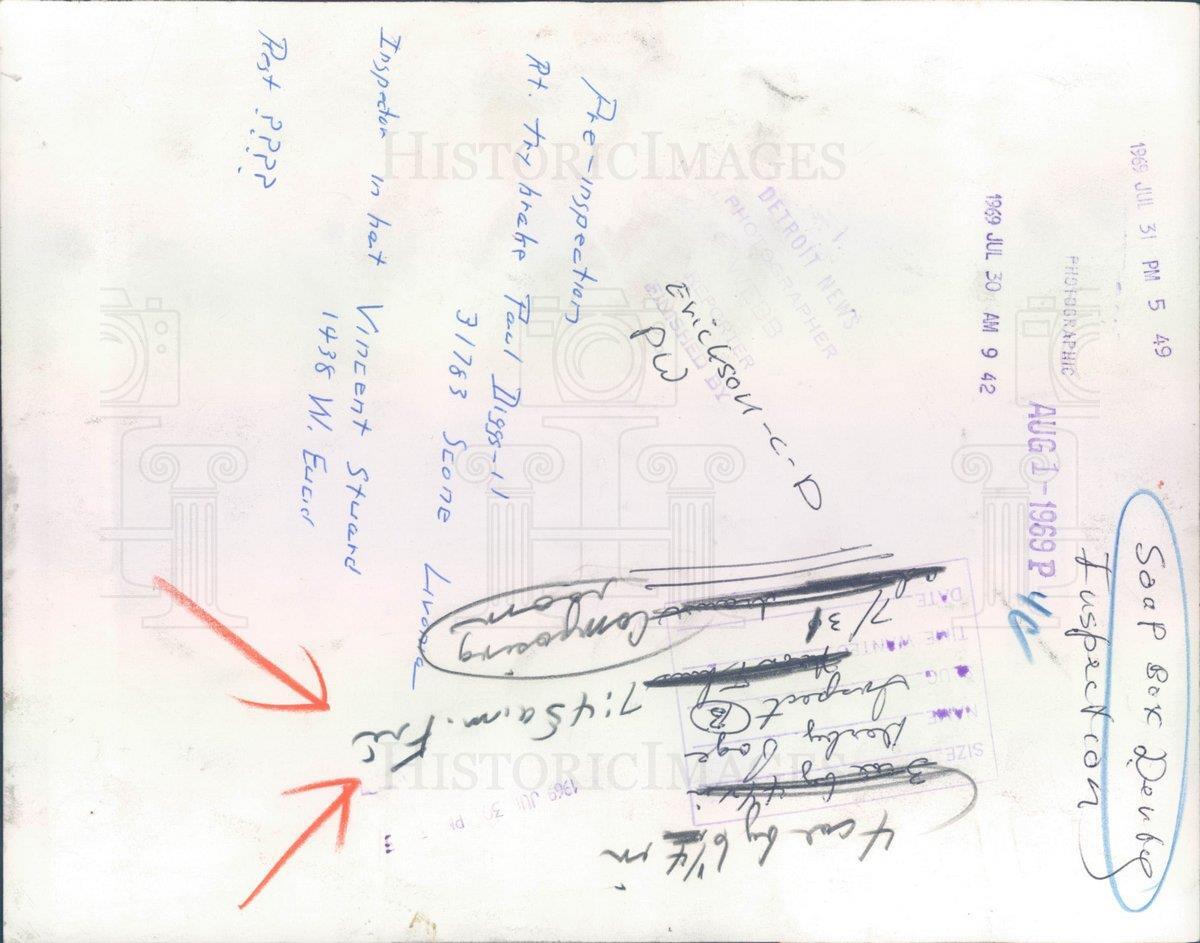 Soap Box Derby
Inspection
1969 JUL 31 PM 5 49
PHOTOGRAPHIC
AUG 1-1969 P
4C
1969 JUL 30 AM 9 42
DETROIT NEWS
PHOTOGRAPHER
REPORTER
FINISHED BY
Erickson-C-D
PW
Pre-inspection
Rt. Try brake Paul Diggs-11
31783 Scone Livonia
Inspector in hat Vincent Steward
1438 W. Euclid
Rest ????
DATE
7/31
TIME WANTED
SLUG
Inspect
NAME
Derby Page
SIZE
3 col by 4 1/4
4 col by 6 1/4 in
Composing
room
7:45 a.m. Fri
1969 JUL 30 PM
HISTORICIMAGES
HISTORICIMAGES